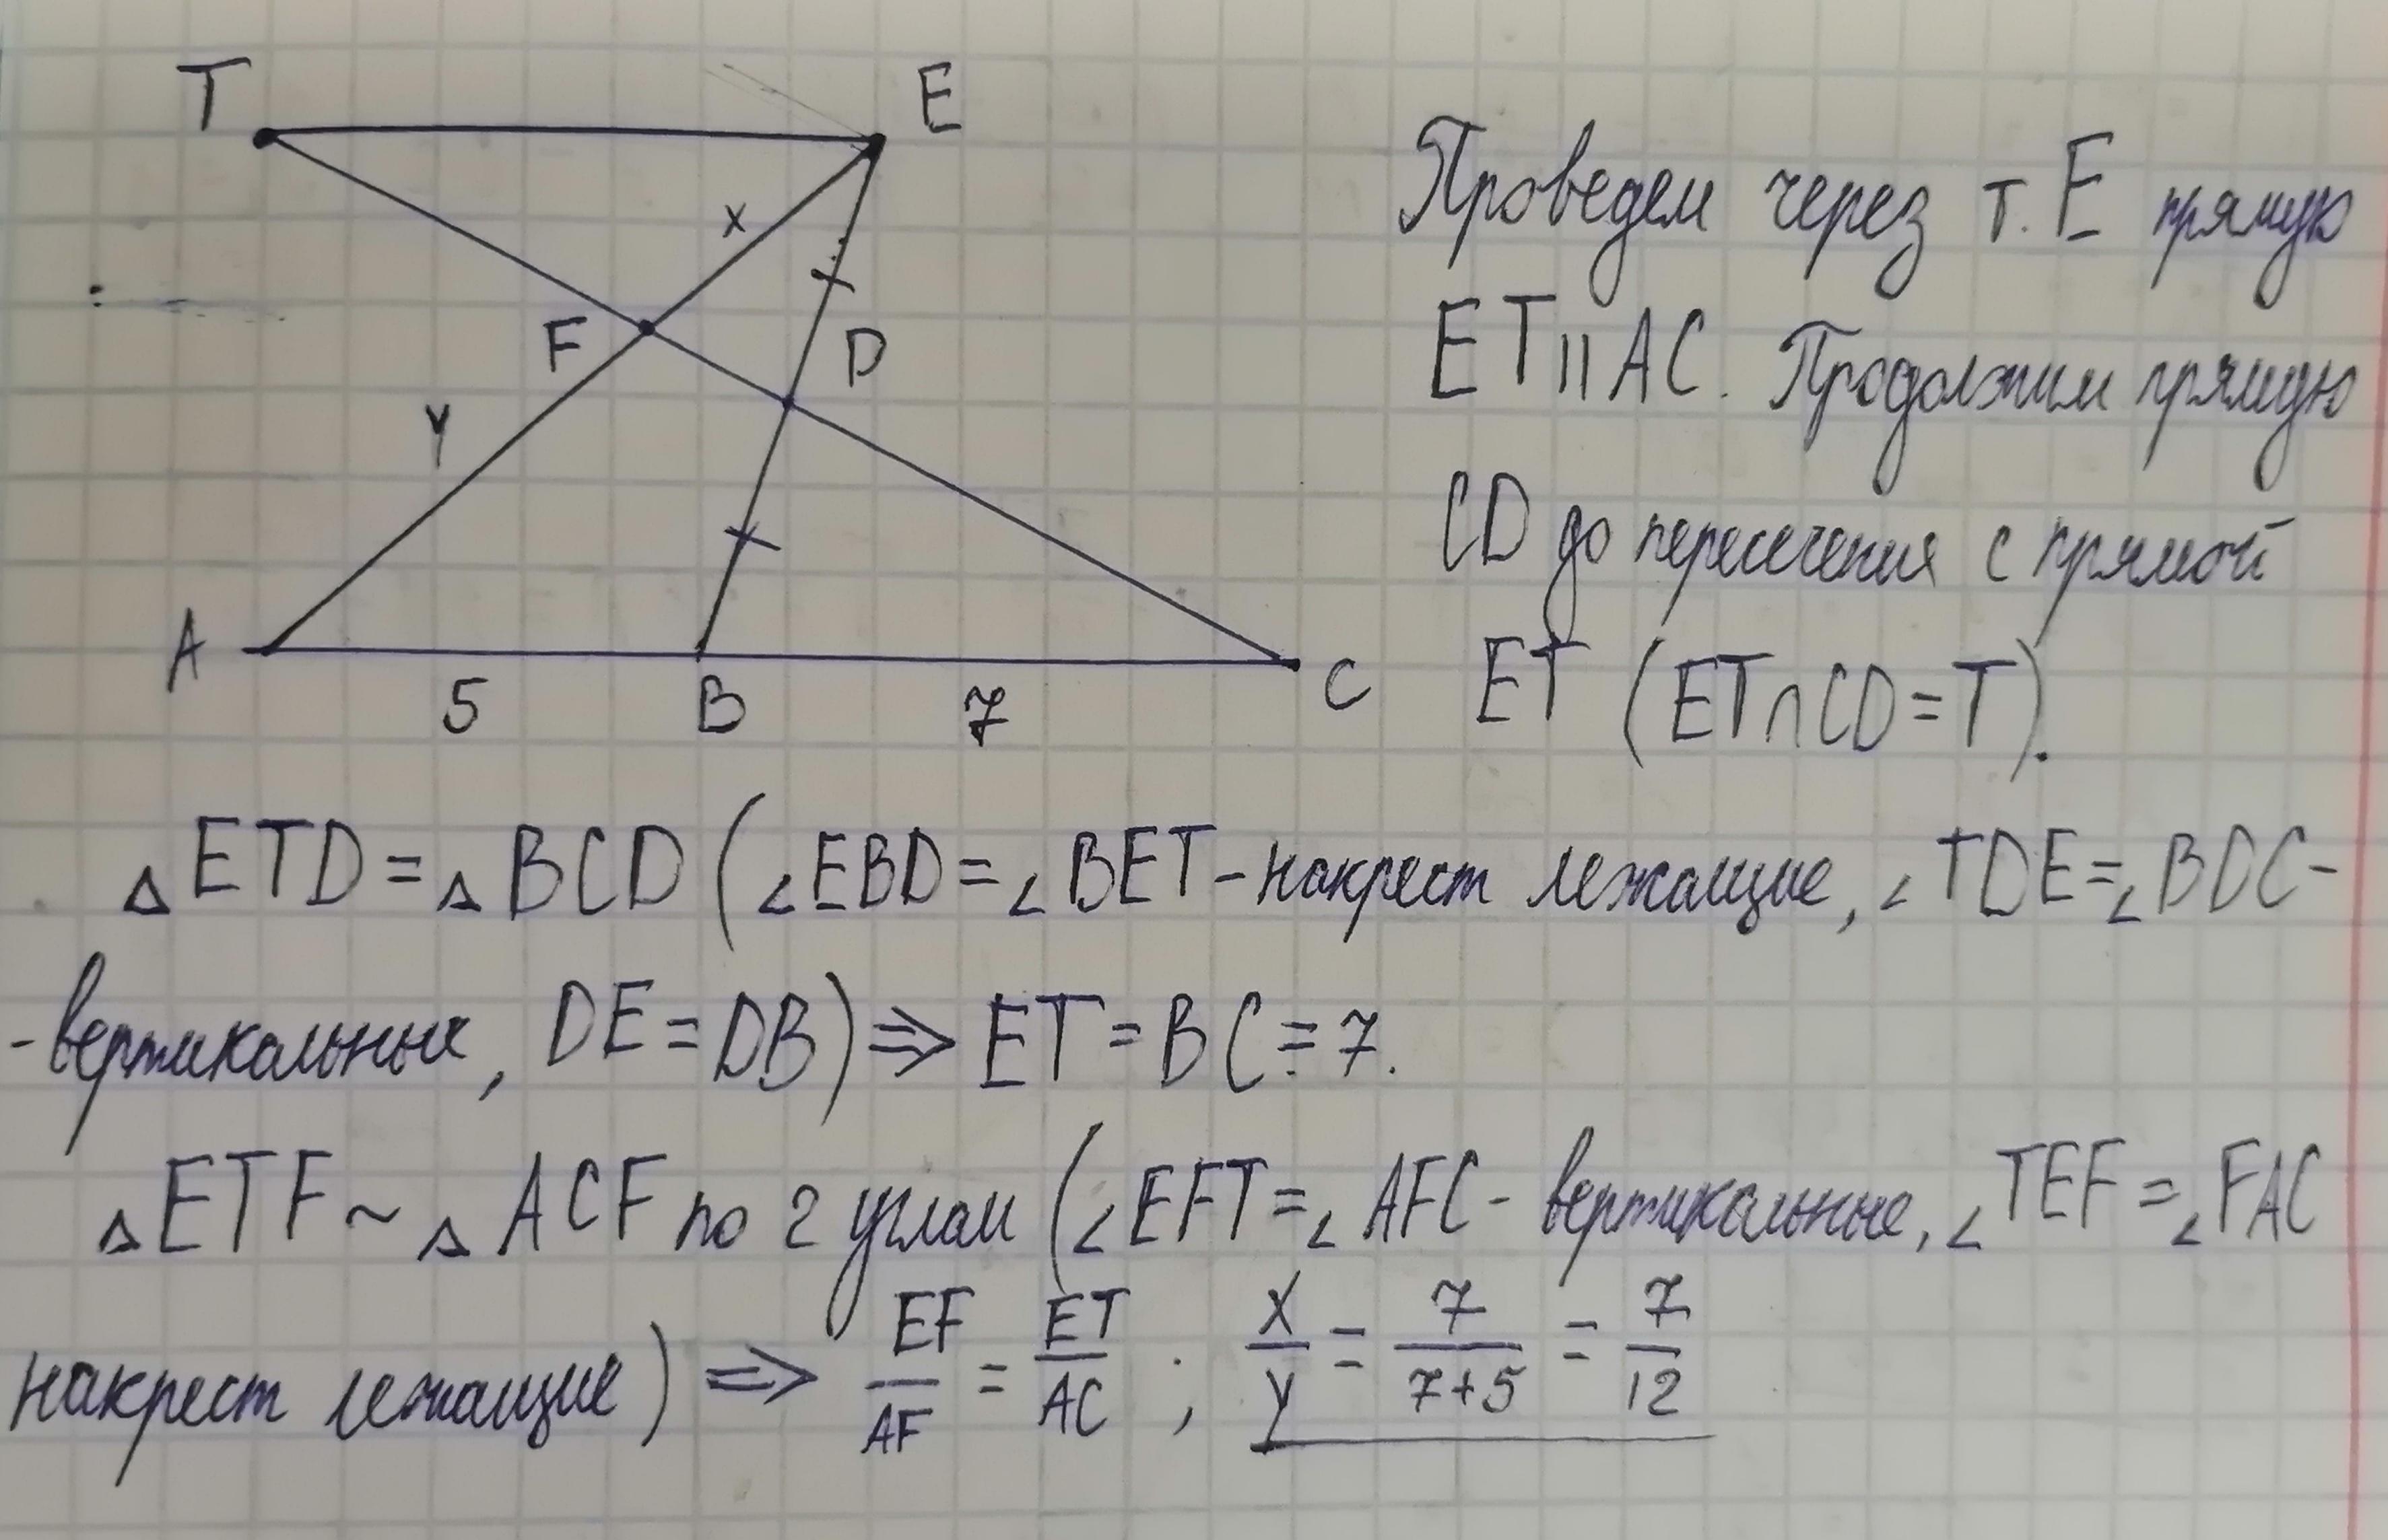 T
E
X
F
D
Y
A
5
B
7
C
Проведем через т. E прямую
ET || AC. Продолжим прямую
CD до пересечения с прямой
ET (ET∩CD=T).
△ETD = △BCD (∠EBD = ∠BET – накрест лежащие, ∠TDE = ∠BDC –
- вертикальные, DE = DB) ⇒ ET = BC = 7.
△ETF ~ △ACF по 2 углам (∠EFT = ∠AFC - вертикальные, ∠TEF = ∠FAC
накрест лежащие) ⇒ EF/AF = ET/AC ; X/Y = 7/(7+5) = 7/12